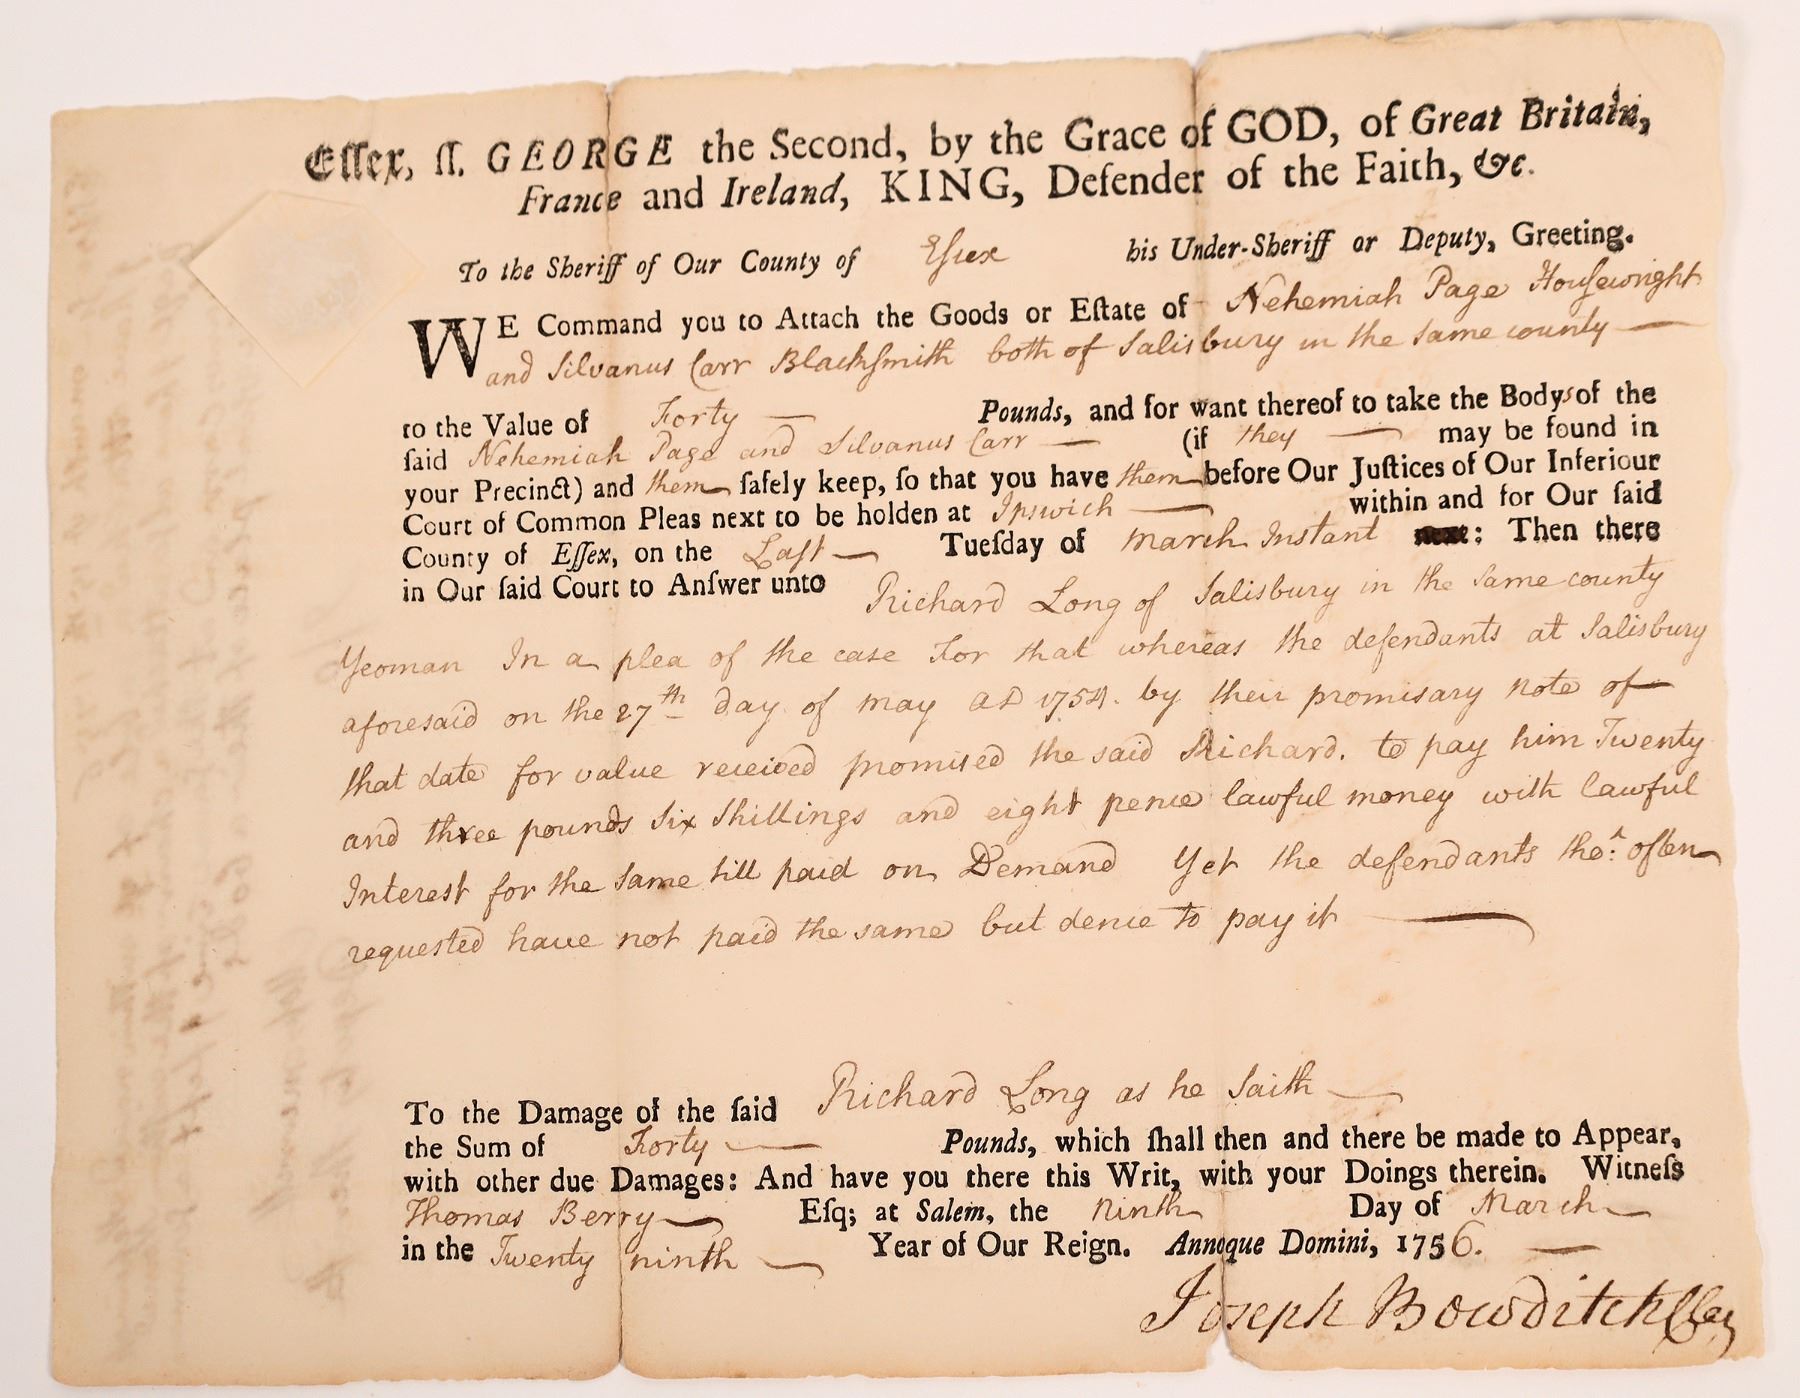 Eſſex, ſſ. GEORGE the Second, by the Grace of GOD, of Great Britain,
France and Ireland, KING, Defender of the Faith, &c.
To the Sheriff of Our County of Eſsex his Under-Sheriff or Deputy, Greeting.
WE Command you to Attach the Goods or Eſtate of Nehemiah Page Houſewright
and Silvanus Carr Blackſmith both of Salisbury in the same county
to the Value of Forty Pounds, and for want thereof to take the Bodys of the
ſaid Nehemiah Page and Silvanus Carr (if they may be found in
your Precinct) and them ſafely keep, ſo that you have them before Our Juſtices of Our Inferiour
Court of Common Pleas next to be holden at Ipswich within and for Our ſaid
County of Eſſex, on the Laſt Tueſday of march Instant : Then there
in Our ſaid Court to Anſwer unto Richard Long of Salisbury in the same county
Yeoman In a plea of the case For that whereas the defendants at Salisbury
aforesaid on the 27th day of may AD 1754. by their promisary note of
that date for value received promised the said Richard. to pay him Twenty
and three pounds six shillings and eight pence lawful money with lawful
Interest for the same till paid on Demand Yet the defendants tho: often
requested have not paid the same but denie to pay it
To the Damage of the ſaid Richard Long as he saith
the Sum of Forty Pounds, which ſhall then and there be made to Appear,
with other due Damages: And have you there this Writ, with your Doings therein. Witneſs
Thomas Berry Eſq; at Salem, the ninth Day of March
in the Twenty ninth Year of Our Reign. Annoque Domini, 1756.
Joseph Bowditch Cler